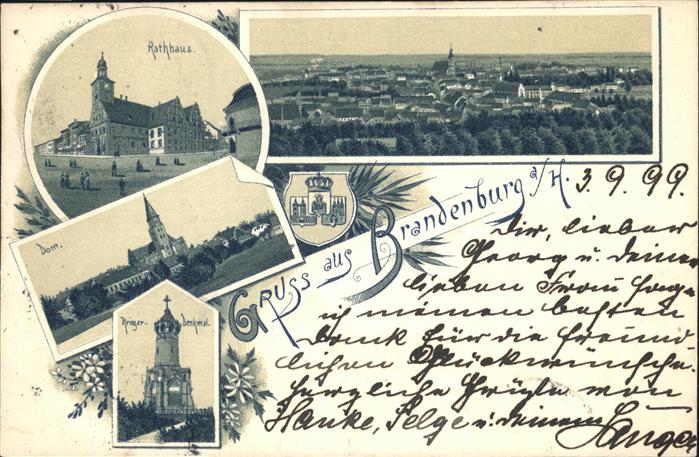 Rathhaus.
Dom.
Krieger-Denkmal.
Gruss aus Brandenburg a/H.
3.9.99.
Dir, lieber
Georg u. deiner
lieben Frau sage
ich meinen besten
Dank für die freund-
lichen Glückwünsche.
Herzliche Grüße von
Hauke, Felge u. deinem